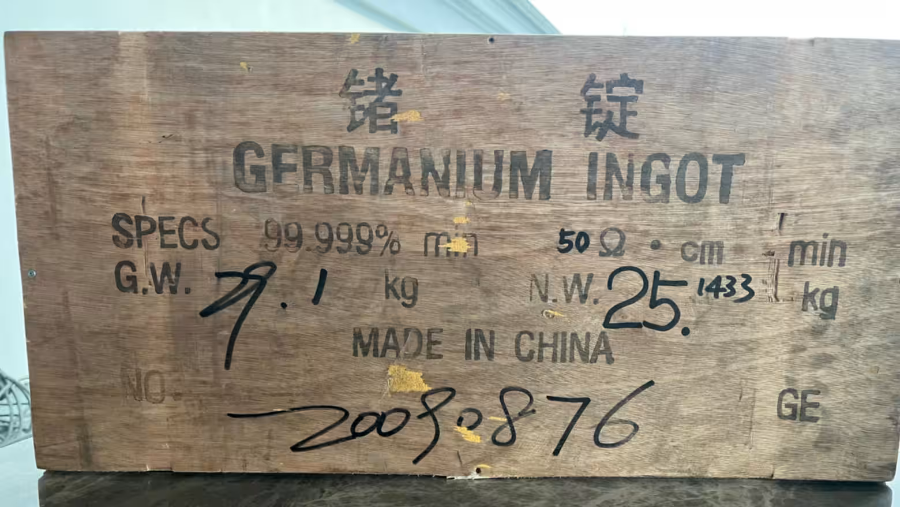 锗 锭
GERMANIUM INGOT
SPECS 99.999% min 50 Ω·cm min
G.W. 29.1 kg N.W. 25.1433 kg
MADE IN CHINA
NO. 20090876 GE